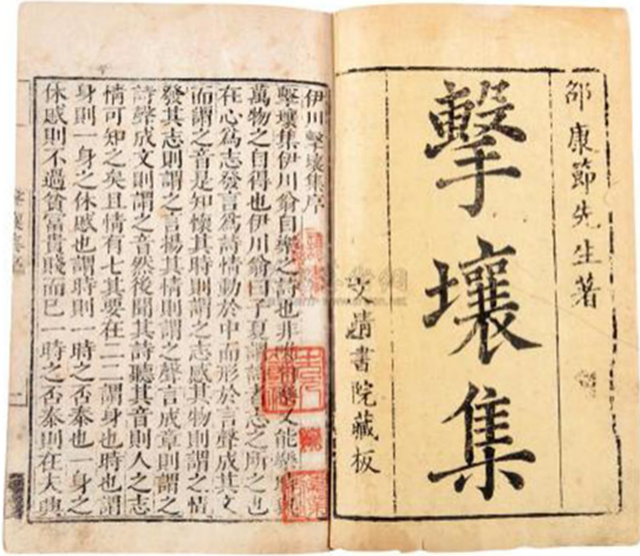 邵康節先生著
擊壤集
文靖書院藏板
伊川擊壤集序
擊壤集伊川翁自樂之詩也非自又能樂時與
萬物之自得也伊川翁曰子夏謂詩者志之所之也
在心為志發言為詩情動於中而形於言聲成其文
而謂之音是知懷其時則謂之志感其物則謂之情
發其志則謂之言揚其情則謂之聲言成章則謂之
詩聲成文則謂之音然後聞其詩聽其音則人之志
情可知之矣且情有七其要在二二謂身也時也謂
身則一身之休慼也謂時則一時之否泰也一身之
休慼則不過貧富貴賤而已一時之否泰則在夫興